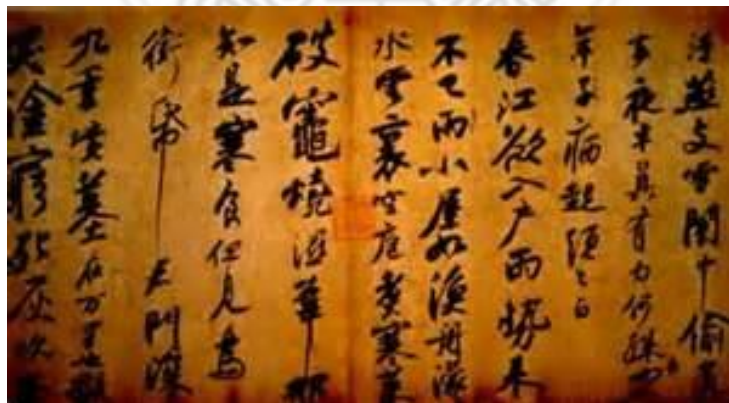 汙燕支雪闇中偷負
去夜半真有力何殊少
年子病起頭已白
春江欲入戶雨勢来
不已雨小屋如漁舟濛
水雲裏空庖煮寒菜
破竈燒濕葦那
知是寒食但見烏
銜帋君門深
九重墳墓在万里也擬
哭塗窮死灰吹不